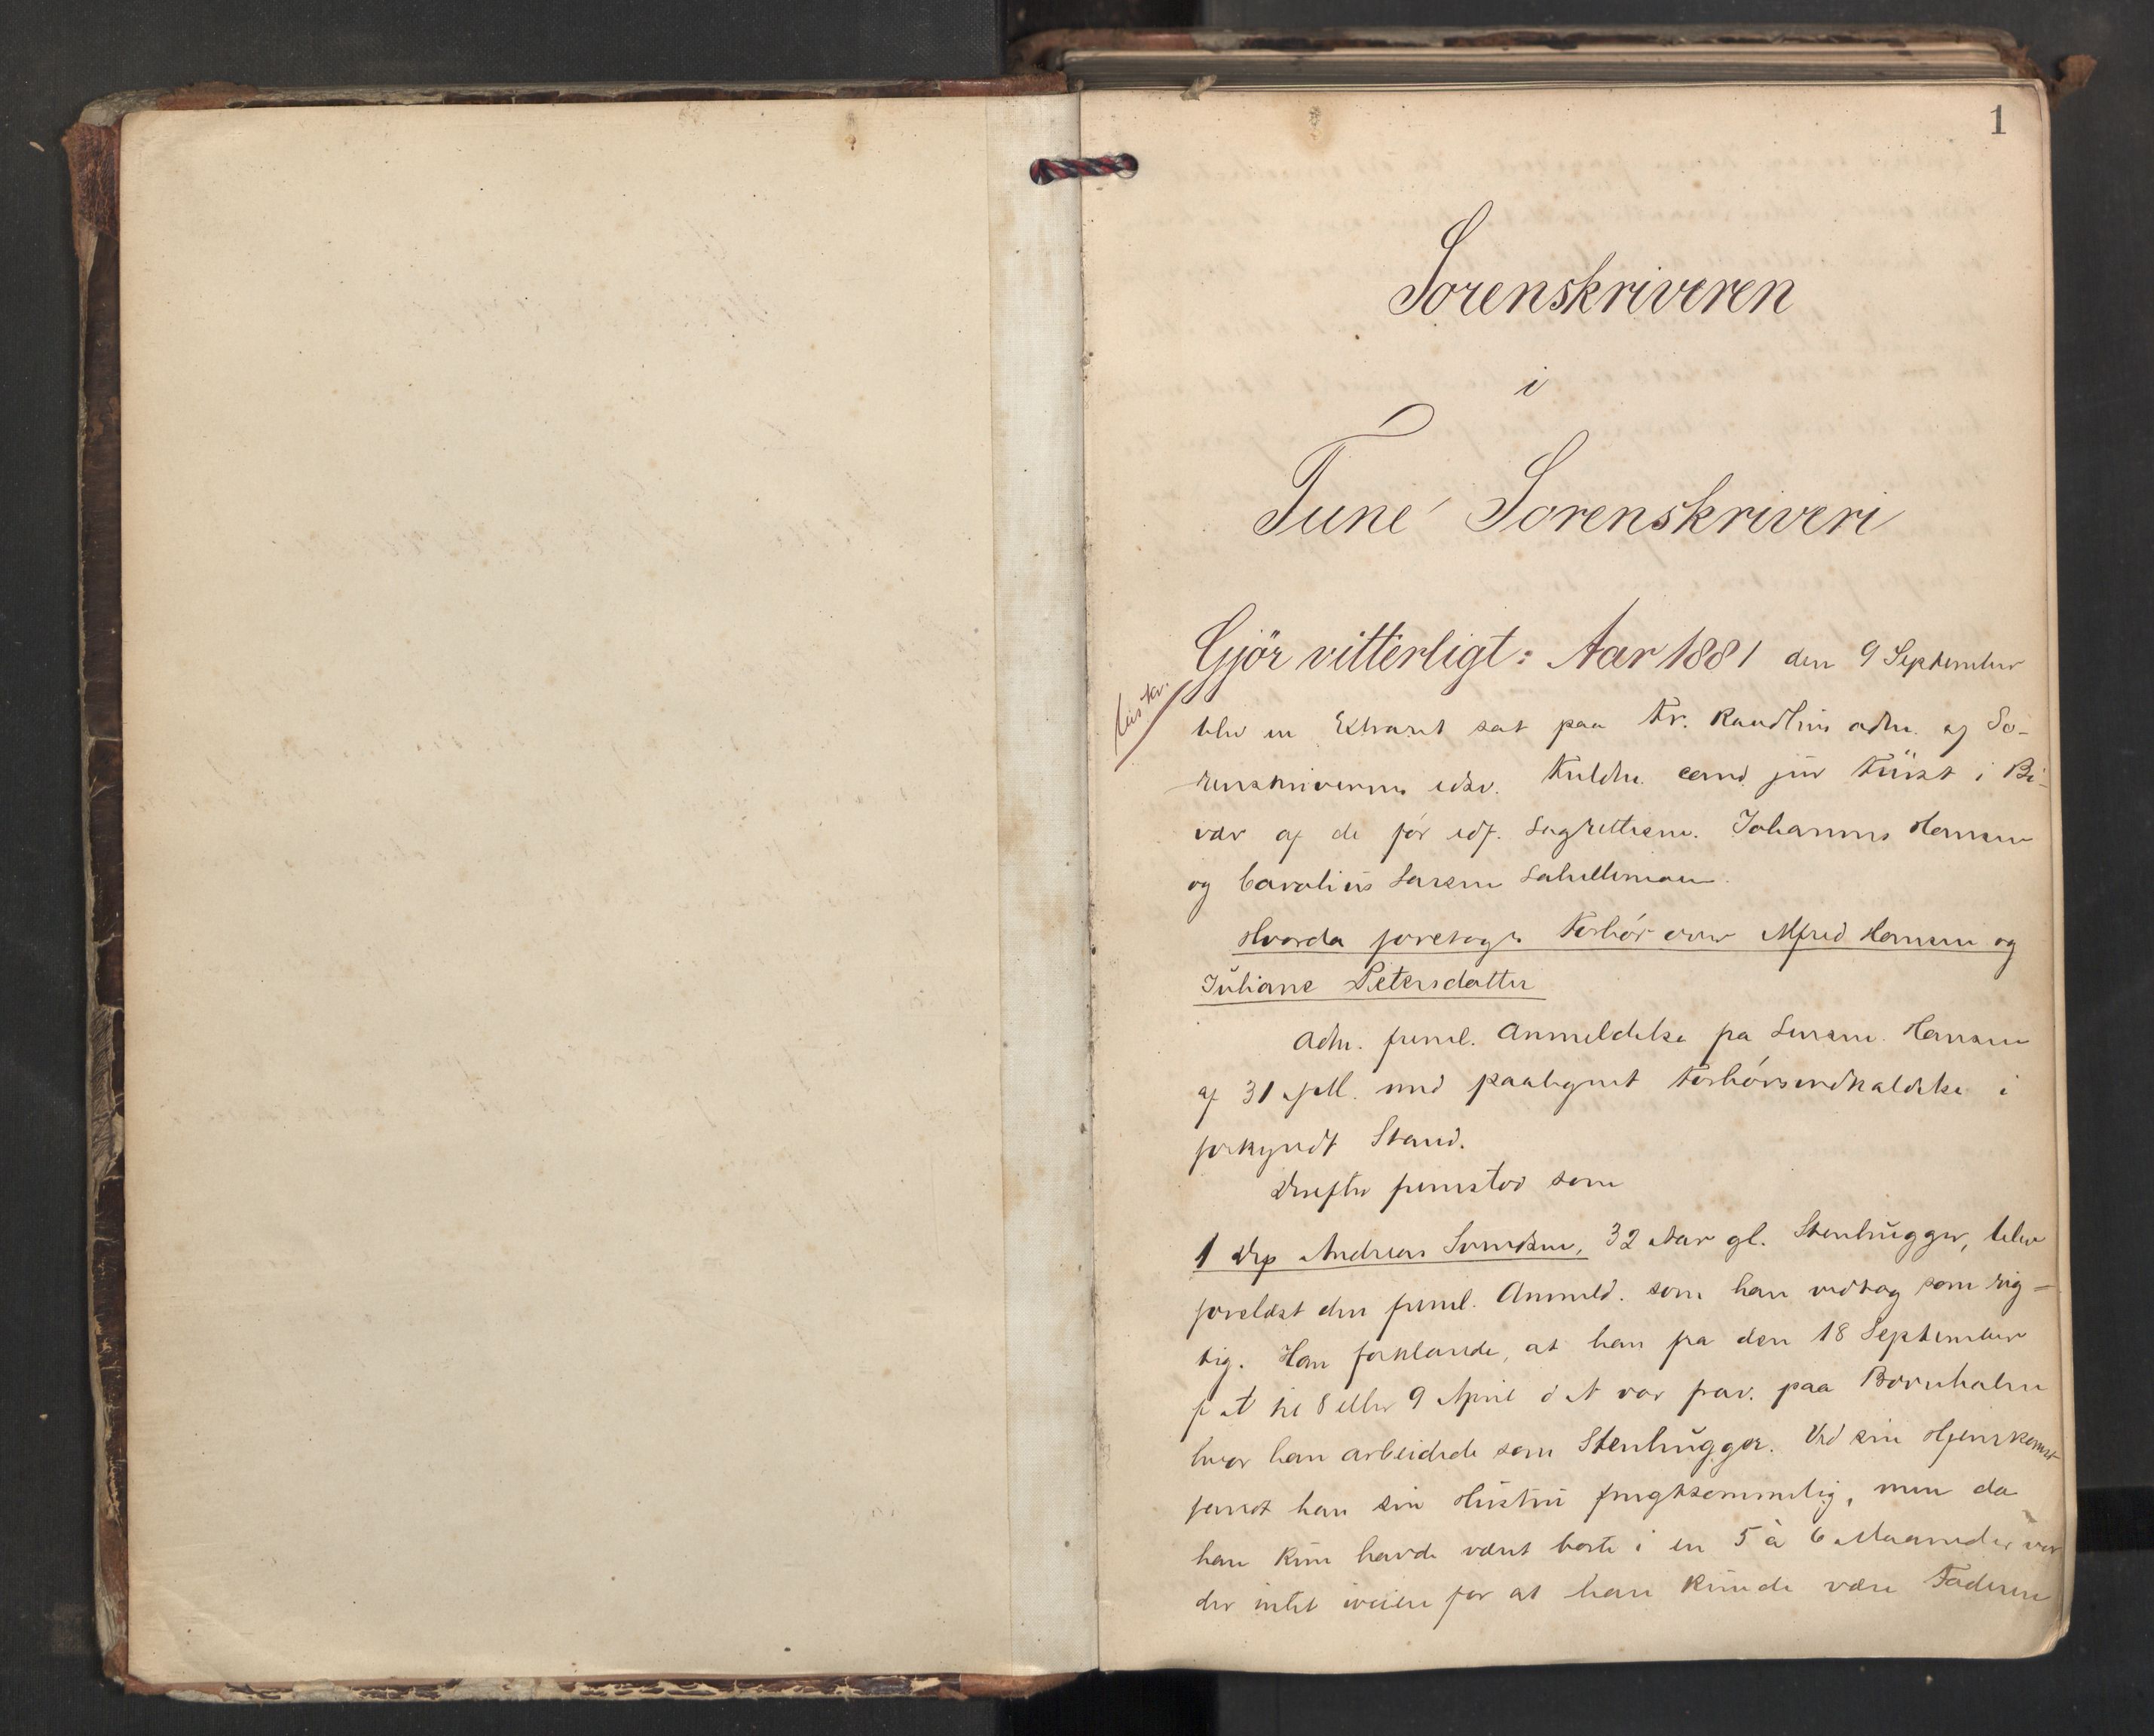 1
Sorenskriveren
i
Tune Sorenskriveri
Gjör vitterligt: Aar 1881 den 9 September
blev en Extraret sat paa Kr. Sandlius adm. af So-
renskriverens edsv. Fuldm. cand jur Fürst i Bi-
vær af de för edf. Lagrettesm. Johannes Hansen
og Carolius Larsen
Hvorda foretoges Forhör over Alfred Hansen og
Juliane Petersdatter
Adm. freml. Anmeldelse fra Lensm. Hansen
af 31 f M. med paategnet Forhörsindkaldelse i
forkyndt Stand.
Derefter fremstod som
1 Dep Andreas Svendsen, 32 Aar gl. Stenhugger, blev
forelæst den freml. Anmeld. som han vedtog som rig-
tig. Han forklarede, at han fra den 18 September
f A til 8 eller 9 April d A var frav. paa Bornholm
hvor han arbeidede som Stenhugger. Ved sin Hjemkomst
fandt han sin Hustru frugtsommelig, men da
han kun havde været borte i en 5 à 6 Maaneder var
der intet iveien for at han kunde være Faderen